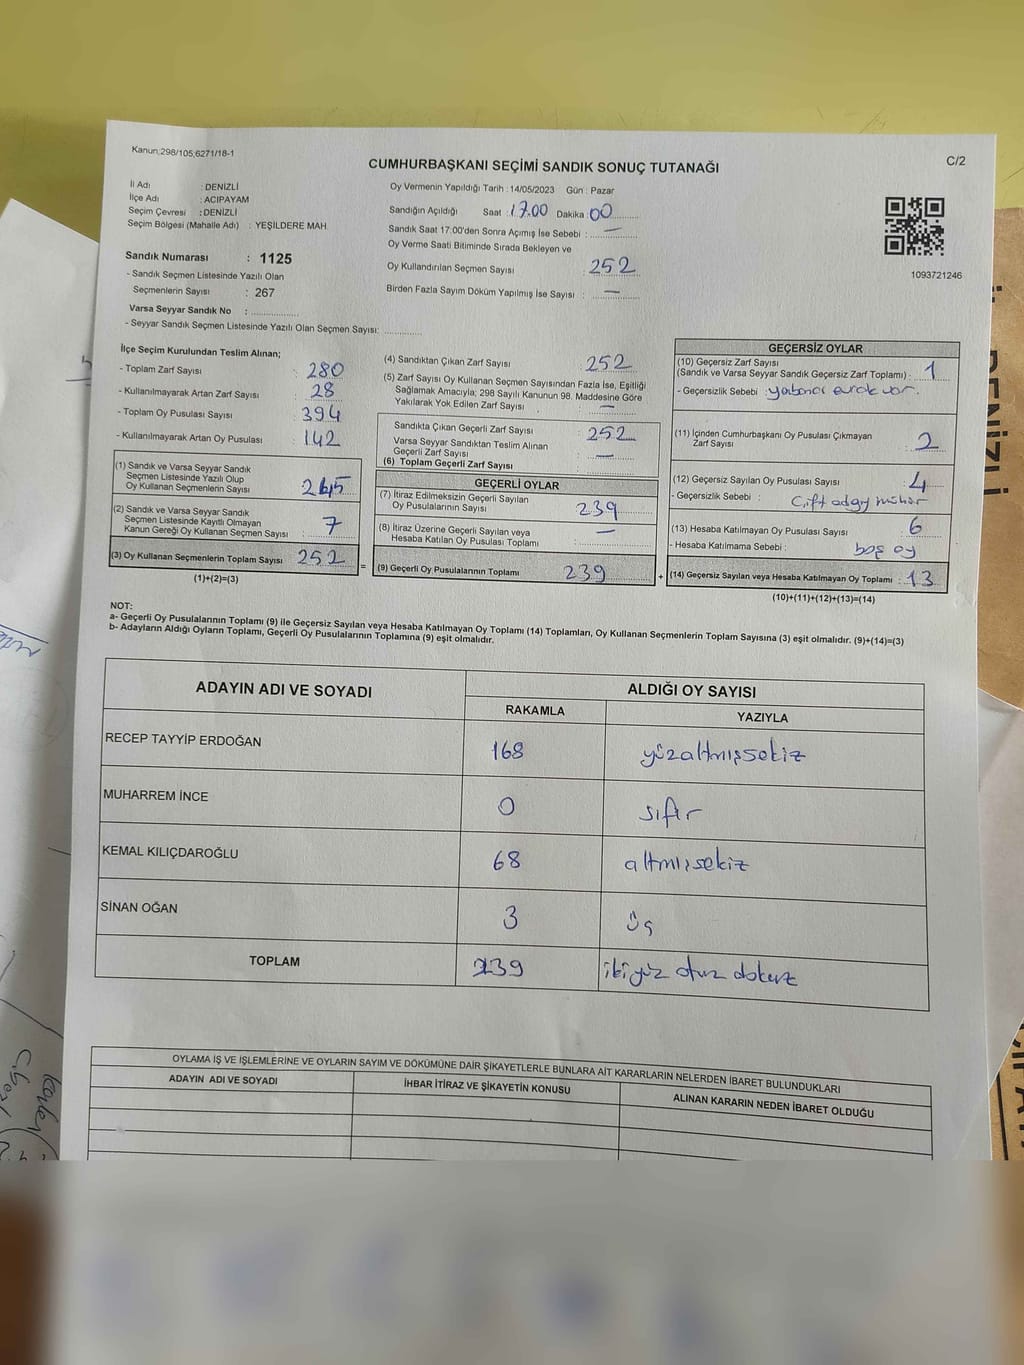 Kanun;298/105,6271/18-1
C/2
CUMHURBAŞKANI SEÇİMİ SANDIK SONUÇ TUTANAĞI
İl Adı : DENİZLİ
İlçe Adı : ACIPAYAM
Seçim Çevresi : DENİZLİ
Seçim Bölgesi (Mahalle Adı) : YEŞİLDERE MAH
Sandık Numarası : 1125
- Sandık Seçmen Listesinde Yazılı Olan
Seçmenlerin Sayısı : 267
Varsa Seyyar Sandık No : ..............
- Seyyar Sandık Seçmen Listesinde Yazılı Olan Seçmen Sayısı: ............
Oy Vermenin Yapıldığı Tarih : 14/05/2023 Gün : Pazar
Sandığın Açıldığı Saat : 17.00 Dakika : 00
Sandık Saat 17:00'den Sonra Açımış İse Sebebi : —
Oy Verme Saati Bitiminde Sırada Bekleyen ve
Oy Kullandırılan Seçmen Sayısı : 252
Birden Fazla Sayım Döküm Yapılmış İse Sayısı : —
1093721246
İlçe Seçim Kurulundan Teslim Alınan;
- Toplam Zarf Sayısı : 280
- Kullanılmayarak Artan Zarf Sayısı : 28
- Toplam Oy Pusulası Sayısı : 394
- Kullanılmayarak Artan Oy Pusulası : 142
(1) Sandık ve Varsa Seyyar Sandık
Seçmen Listesinde Yazılı Olup
Oy Kullanan Seçmenlerin Sayısı : 245
(2) Sandık ve Varsa Seyyar Sandık
Seçmen Listesinde Kayıtlı Olmayan
Kanun Gereği Oy Kullanan Seçmen Sayısı : 7
(3) Oy Kullanan Seçmenlerin Toplam Sayısı : 252
(1)+(2)=(3)
(4) Sandıktan Çıkan Zarf Sayısı : 252
(5) Zarf Sayısı Oy Kullanan Seçmen Sayısından Fazla İse, Eşitliği
Sağlamak Amacıyla; 298 Sayılı Kanunun 98. Maddesine Göre
Yakılarak Yok Edilen Zarf Sayısı : —
Sandıkta Çıkan Geçerli Zarf Sayısı : 252
Varsa Seyyar Sandıktan Teslim Alınan
Geçerli Zarf Sayısı : —
(6) Toplam Geçerli Zarf Sayısı :
GEÇERLİ OYLAR
(7) İtiraz Edilmeksizin Geçerli Sayılan
Oy Pusulalarının Sayısı : 239
(8) İtiraz Üzerine Geçerli Sayılan veya
Hesaba Katılan Oy Pusulası Toplamı : —
= (9) Geçerli Oy Pusulalarının Toplamı : 239
GEÇERSİZ OYLAR
(10) Geçersiz Zarf Sayısı
(Sandık ve Varsa Seyyar Sandık Geçersiz Zarf Toplamı) : 1
- Geçersizlik Sebebi : yabancı evrak var.
(11) İçinden Cumhurbaşkanı Oy Pusulası Çıkmayan
Zarf Sayısı : 2
(12) Geçersiz Sayılan Oy Pusulası Sayısı : 4
- Geçersizlik Sebebi : Çift aday mühür
(13) Hesaba Katılmayan Oy Pusulası Sayısı : 6
- Hesaba Katılmama Sebebi : boş oy
+ (14) Geçersiz Sayılan veya Hesaba Katılmayan Oy Toplamı : 13
(10)+(11)+(12)+(13)=(14)
NOT:
a- Geçerli Oy Pusulalarının Toplamı (9) ile Geçersiz Sayılan veya Hesaba Katılmayan Oy Toplamı (14) Toplamları, Oy Kullanan Seçmenlerin Toplam Sayısına (3) eşit olmalıdır. (9)+(14)=(3)
b- Adayların Aldığı Oyların Toplamı, Geçerli Oy Pusulalarının Toplamına (9) eşit olmalıdır.
ADAYIN ADI VE SOYADI ALDIĞI OY SAYISI
RAKAMLA YAZIYLA
RECEP TAYYİP ERDOĞAN 168 yüzaltmışsekiz
MUHARREM İNCE 0 sıfır
KEMAL KILIÇDAROĞLU 68 altmışsekiz
SİNAN OĞAN 3 üç
TOPLAM 239 ikiyüz otuz dokuz
OYLAMA İŞ VE İŞLEMLERİNE VE OYLARIN SAYIM VE DÖKÜMÜNE DAİR ŞİKAYETLERLE BUNLARA AİT KARARLARIN NELERDEN İBARET BULUNDUKLARI
ADAYIN ADI VE SOYADI İHBAR İTİRAZ VE ŞİKAYETİN KONUSU ALINAN KARARIN NEDEN İBARET OLDUĞU
DENİZLİ